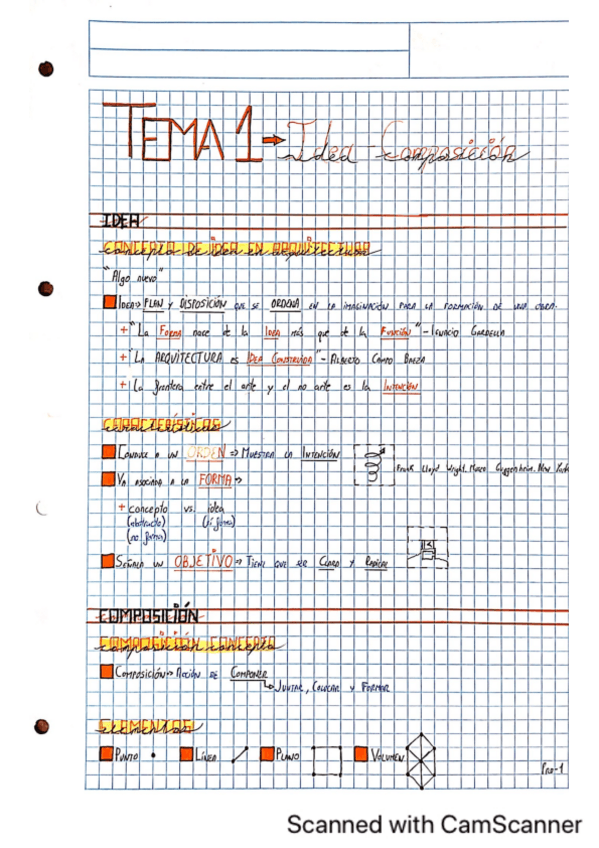 TEMA 1 → Idea - Composición
IDEA
CONCEPTO DE IDEA EN ARQUITECTURA
"Algo nuevo"
IDEA→ PLAN y DISPOSICIÓN QUE SE ORDENA EN LA IMAGINACIÓN PARA LA FORMACIÓN DE UNA OBRA.
+ "La FORMA nace de la IDEA más que de la FUNCIÓN" - IGNACIO GARDELLA
+ "LA ARQUITECTURA es IDEA CONSTRUIDA" - ALBERTO CAMPO BAEZA
+ La frontera entre el arte y el no arte es la INTENCIÓN
CARACTERÍSTICAS
CONDUCE A UN ORDEN → MUESTRA LA INTENCIÓN
Frank Lloyd Wright. Museo Guggenheim. New York
VA ASOCIADO A LA FORMA→
+ concepto vs. idea
(abstracto) (sí forma)
(no forma)
SEÑALA UN OBJETIVO → TIENE QUE SER CLARO Y RADICAL
COMPOSICIÓN
COMPOSICIÓN CONCEPTO
COMPOSICIÓN→ ACCIÓN DE COMPONER
↳ JUNTAR, COLOCAR Y FORMAR
ELEMENTOS
PUNTO LÍNEA PLANO VOLUMEN
Scanned with CamScanner